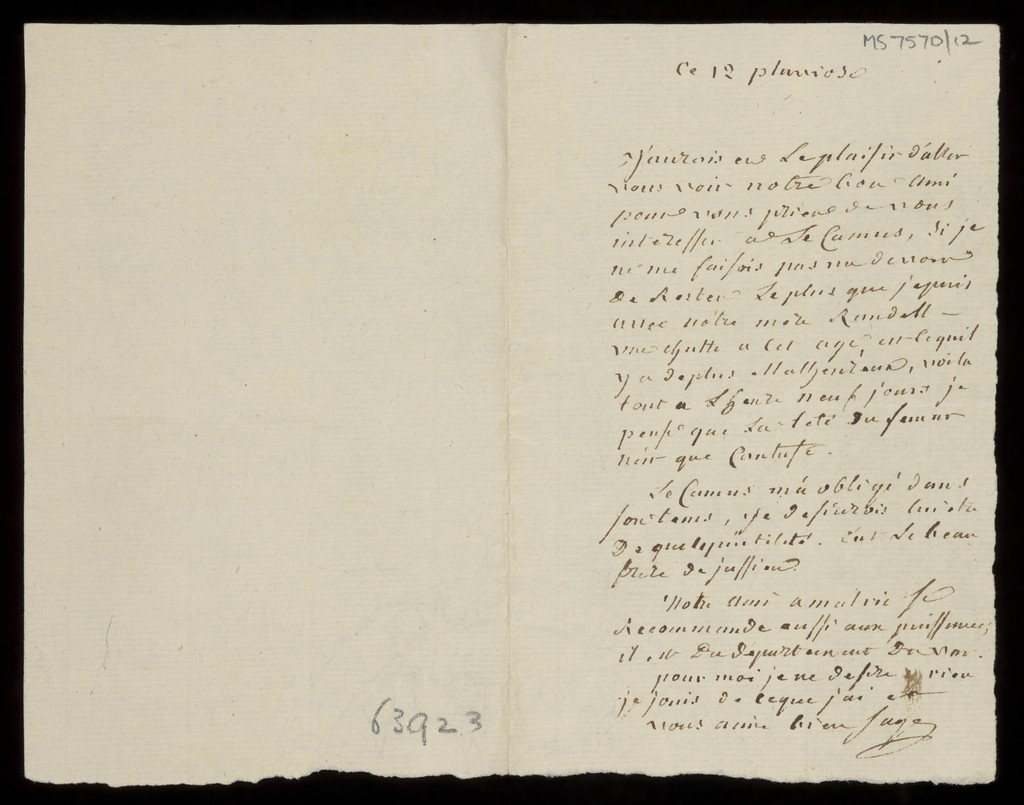 MS 7570/12
Ce 12 pluviose
J'aurois eu Le plaisir d'aller
vous voir notre bon ami
pour vous prier de vous
interesser a Le Camus, Si je
ne me faisois pas un devoir
de Rester Le plus que je puis
avec notre mere
une chutte a cet age est ce quil
y a de plus Malheureux, voila
tout a L'heure neuf jours je
pense que La tete du femur
n'est que Contuse.
Le Camus m'a obligé dans
son tems, je desirerois lui etre
De quelqu'utilité. C'est Le beau
frere de jussieu.
Notre ami amalric se
Recommande aussi aux puissances,
il est Du département Du var.
pour moi je ne desire rien
je jouis de ceque j'ai et
vous aime bien Sage
63923